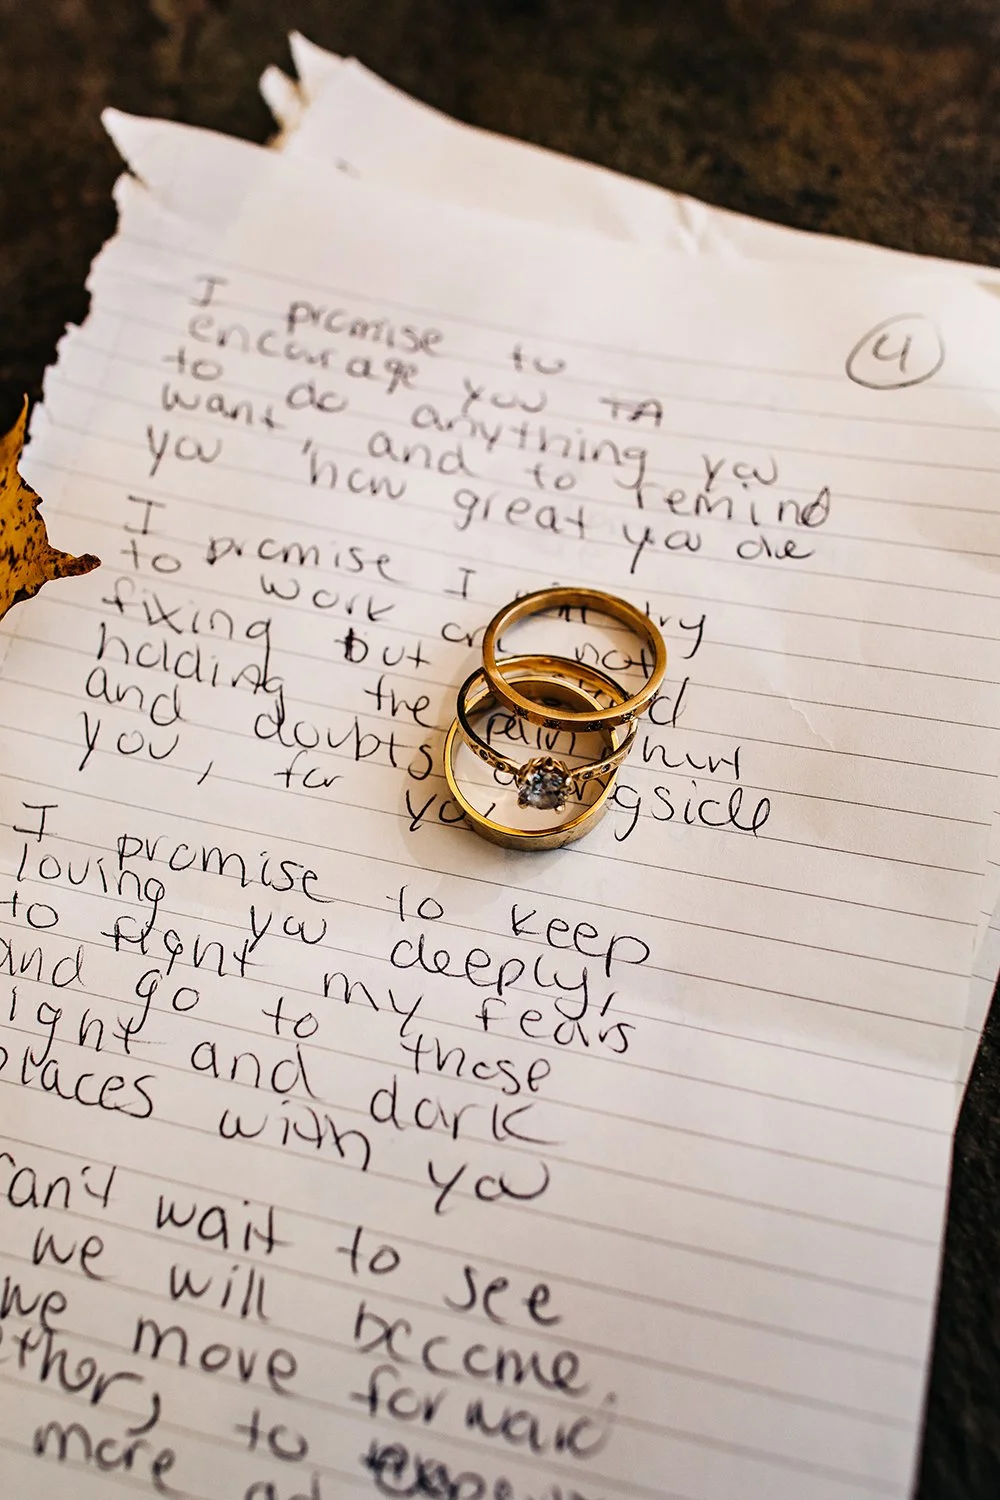 4
I promise to
encourage you TA
to do anything you
want, and to remind
you how great you are
I promise I try
to work on not
fixing but
holding the
and doubts alongside
you, for you
I promise to keep
loving you deeply,
to fight my fears
and go to those
light and dark
places with you
can't wait to see
we will become
we move forward
to
more